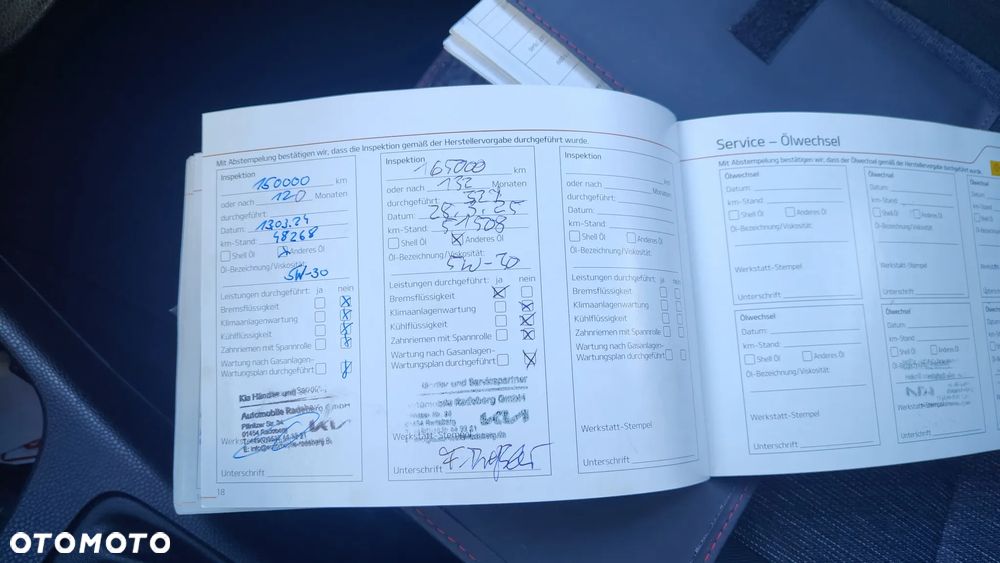 Mit Abstempelung bestätigen wir, dass die Inspektion gemäß der Herstellervorgabe durchgeführt wurde.
Inspektion
150000 km
oder nach 120 Monaten
durchgeführt:
Datum: 13.03.24
km-Stand: 48268
Shell Öl Anderes Öl
Öl-Bezeichnung/Viskosität:
5W-30
Leistungen durchgeführt: ja nein
Bremsflüssigkeit
Klimaanlagenwartung
Kühlflüssigkeit
Zahnriemen mit Spannrolle
Wartung nach Gasanlagen-
Wartungsplan durchgeführt
Kia Händler und
Automobile
Pillnitzer Str.
01454 Radeberg
Unterschrift
18
Inspektion
165000 km
oder nach 132 Monaten
durchgeführt:
Datum:
km-Stand: 51508
Shell Öl Anderes Öl
Öl-Bezeichnung/Viskosität:
Leistungen durchgeführt: ja nein
Bremsflüssigkeit
Klimaanlagenwartung
Kühlflüssigkeit
Zahnriemen mit Spannrolle
Wartung nach Gasanlagen-
Wartungsplan durchgeführt
und Servicepartner
Radeberg GmbH
01454 Radeberg
Unterschrift
Inspektion
km
oder nach Monaten
durchgeführt:
Datum:
km-Stand:
Shell Öl Anderes Öl
Öl-Bezeichnung/Viskosität:
Leistungen durchgeführt: ja nein
Bremsflüssigkeit
Klimaanlagenwartung
Kühlflüssigkeit
Zahnriemen mit Spannrolle
Wartung nach Gasanlagen-
Wartungsplan durchgeführt
Werkstatt-Stempel
Unterschrift
Service – Ölwechsel
Mit Abstempelung bestätigen wir, dass der Ölwechsel gemäß der Herstellervorgabe durchgeführt wurde.
Ölwechsel
Datum:
km-Stand:
Shell Öl Anderes Öl
Öl-Bezeichnung/Viskosität:
Werkstatt-Stempel
Unterschrift
Ölwechsel
Datum:
km-Stand:
Shell Öl Anderes Öl
Öl-Bezeichnung/Viskosität:
Werkstatt-Stempel
Unterschrift
Ölwechsel
Datum:
km-Stand:
Shell Öl Anderes Öl
Öl-Bezeichnung/Viskosität:
Werkstatt-Stempel
Unterschrift
Ölwechsel
Datum:
km-Stand:
Shell Öl Anderes Öl
Werkstatt-Stempel
Unterschrift
OTOMOTO